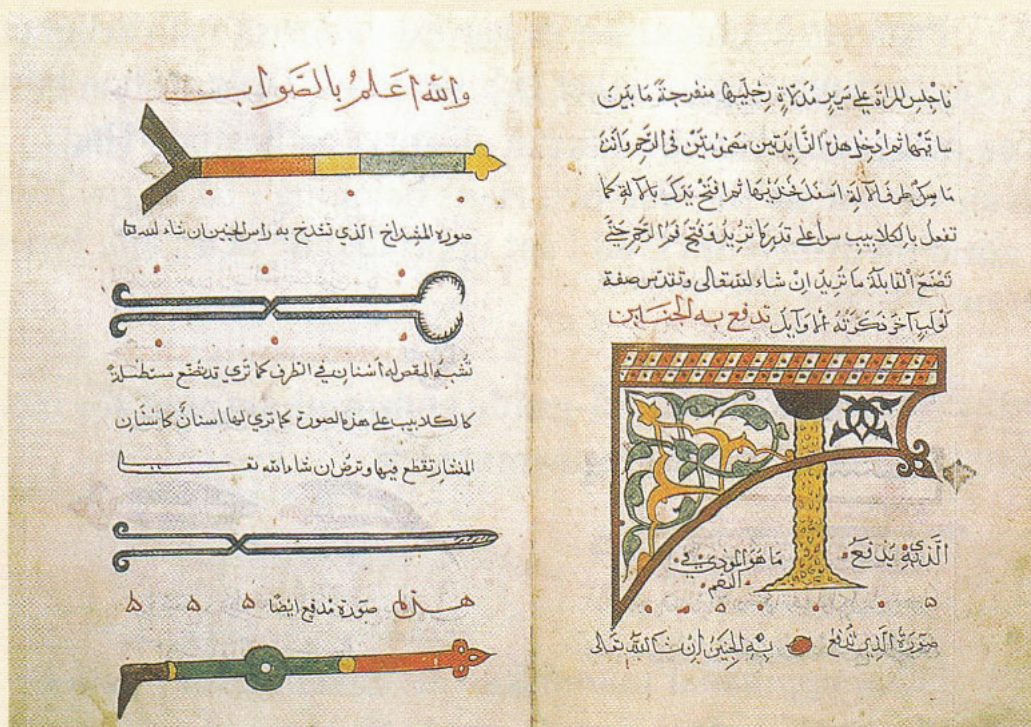 فاجلس المراة علي سرير مدلاة رجليها منفرجة ما بين
ساقيها ثم ادخل هذا الزايدتين مضمومتين في الرحم وانت
ماسك طرف الالة اسفل فخذيها ثم افتح يدك بالالة كما
تفعل بالكلاليب سوا علي قدر ما تريد فتح فم الرحم حتي
تصنع القابلة ما تريد ان شاء الله تعالى وتقدس صفة
لولب آخر ذكرته الاوايل تدفع به الجنين
الذي يدفع
ما هو المودي في
الفم
صورة الذي تدفع به الجنين ان شا الله تعالى
والله اعلم بالصواب
صورة المشداخ الذي تشدخ به راس الجنين ان شاء الله
تشبه المقص له اسنان في الطرف كما تري قد تصنع مستطيلة
كالكلاليب على هذه الصورة كما تري لها اسنان كاسنان
المنشار تقطع فيها وترض ان شاء الله تعـ
صورة مدفع ايضا